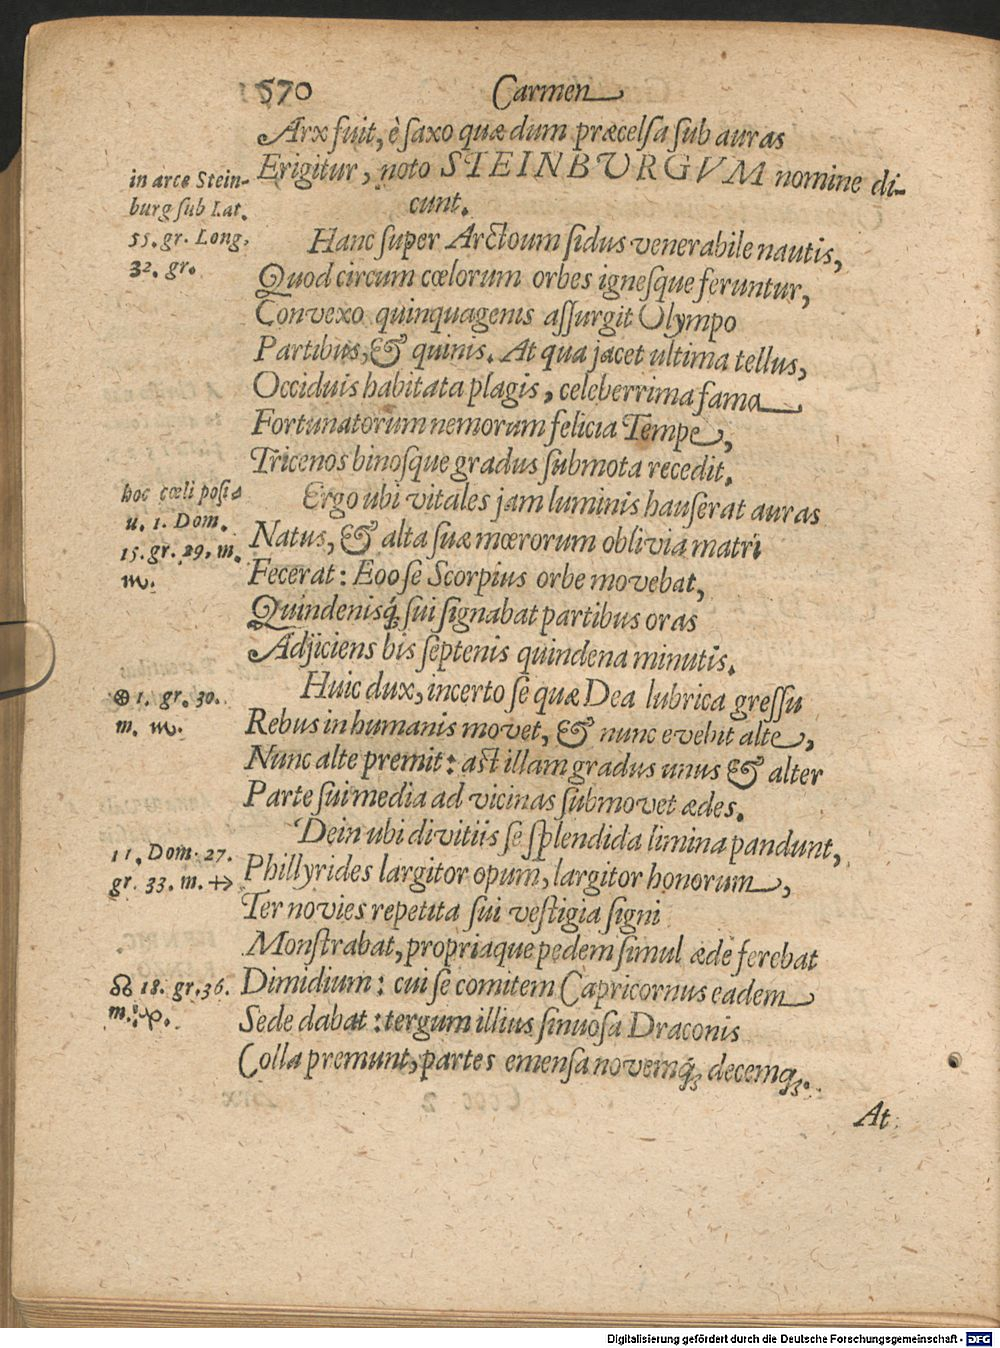 570 Carmen
Arx fuit, è saxo quæ dum præcelsa sub auras
Erigitur, noto STEINBURGVM nomine di-
cunt.
in arce Stein-
burg sub Lat.
55. gr. Long.
32. gr.
Hanc super Arctoum sidus venerabile nautis,
Quod circum cœlorum orbes ignesque feruntur,
Convexo quinquagenis assurgit Olympo
Partibus, & quinis. At qua jacet ultima tellus,
Occiduis habitata plagis, celeberrima fama
Fortunatorum nemorum felicia Tempe,
Tricenos binosque gradus submota recedit.
hoc cœli posit
u. 1. Dom.
15. gr. 29. m.
♏.
Ergo ubi vitales jam luminis hauserat auras
Natus, & alta suæ mœrorum oblivia matri
Fecerat: Eoo se Scorpius orbe movebat,
Quindenisq́; sui signabat partibus oras
Adjiciens bis septenis quindena minutis.
⊗ 1. gr. 30.
m. ♏.
Huic dux, incerto se quæ Dea lubrica gressu
Rebus in humanis movet, & nunc evehit alte,
Nunc alte premit: ast illam gradus unus & alter
Parte sui media ad vicinas submovet ædes.
11. Dom. 27.
gr. 33. m. ♐
Dein ubi divitiis se splendida limina pandunt,
Phillyrides largitor opum, largitor honorum,
Ter novies repetita sui vestigia signi
Monstrabat, propriaque pedem simul æde ferebat
☊ 18. gr. 36.
m. ♑.
Dimidium: cui se comitem Capricornus eadem
Sede dabat: tergum illius sinuosa Draconis
Colla premunt, partes emensa novemq́; decemq́;.
At
Digitalisierung gefördert durch die Deutsche Forschungsgemeinschaft - DFG